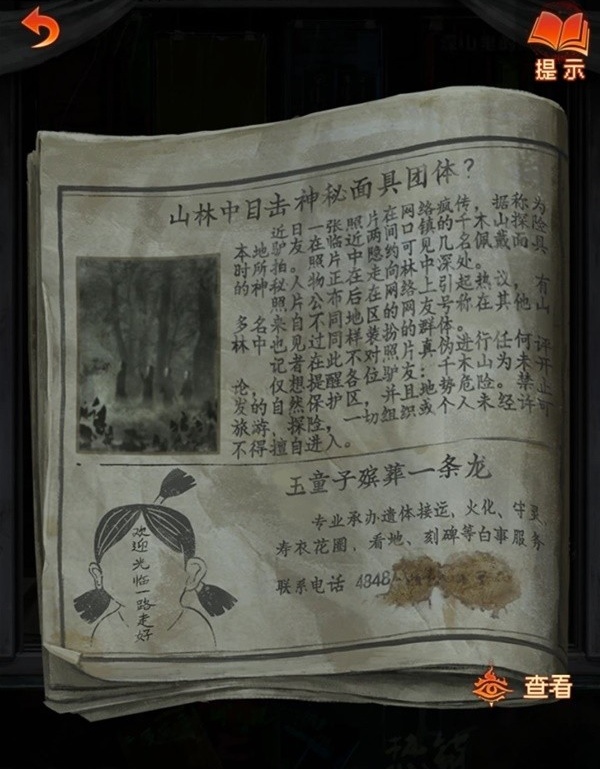 提示
山林中目击神秘面具团体?
近日一张照片在网络疯传,据称为
本地驴友在临近两间口镇的千木山探险
时所拍。照片中隐约可见几名佩戴面具
的神秘人物正在走向林中深处。
照片公布后在网络上引起热议,有
多名来自不同地区的网友号称在其他山
林中也见过同样装扮的群体。
记者在此不对照片真伪进行任何评
论,仅想提醒各位驴友:千木山为未开
发的自然保护区,并且地势危险。禁止
旅游、探险,一切组织或个人未经许可
不得擅自进入。
玉童子殡葬一条龙
专业承办遗体接运、火化、守灵、
寿衣花圈、看地、刻碑等白事服务
联系电话 4848
欢迎光临一路走好
查看